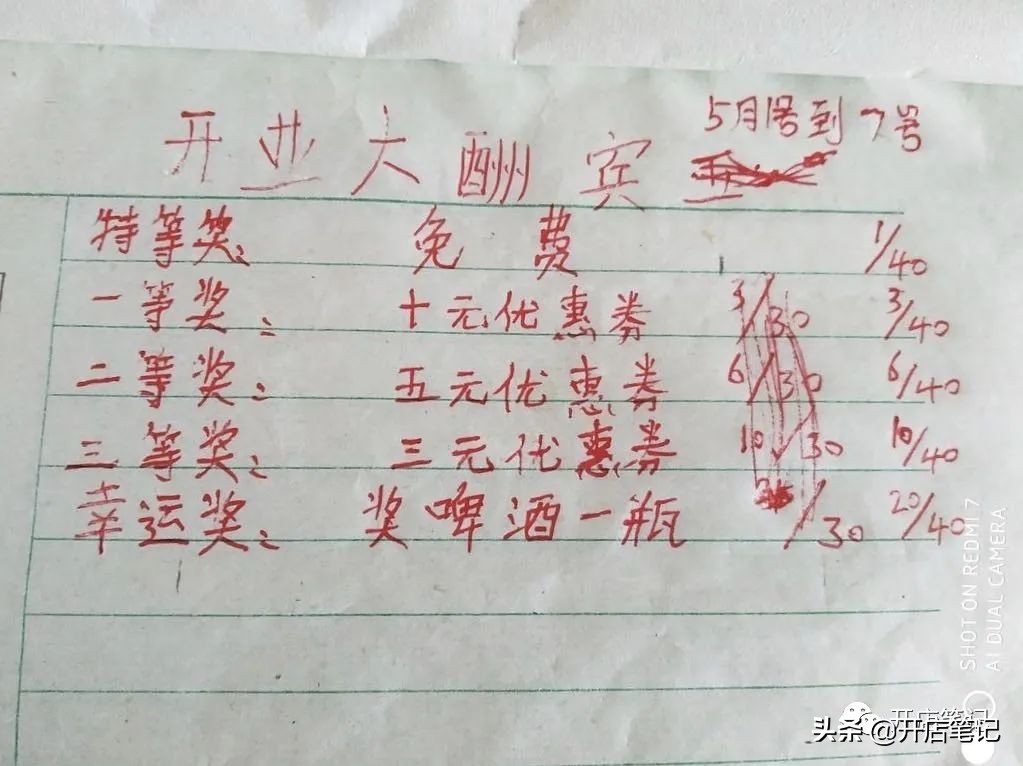 5月1号到7号
开业大酬宾
特等奖: 免费 1/40
一等奖: 十元优惠券 3/30 3/40
二等奖: 五元优惠券 6/30 6/40
三等奖: 三元优惠券 10/30 10/40
幸运奖: 奖啤酒一瓶 /30 20/40
SHOT ON REDMI 7
AI DUAL CAMERA
开店笔记
头条 @开店笔记